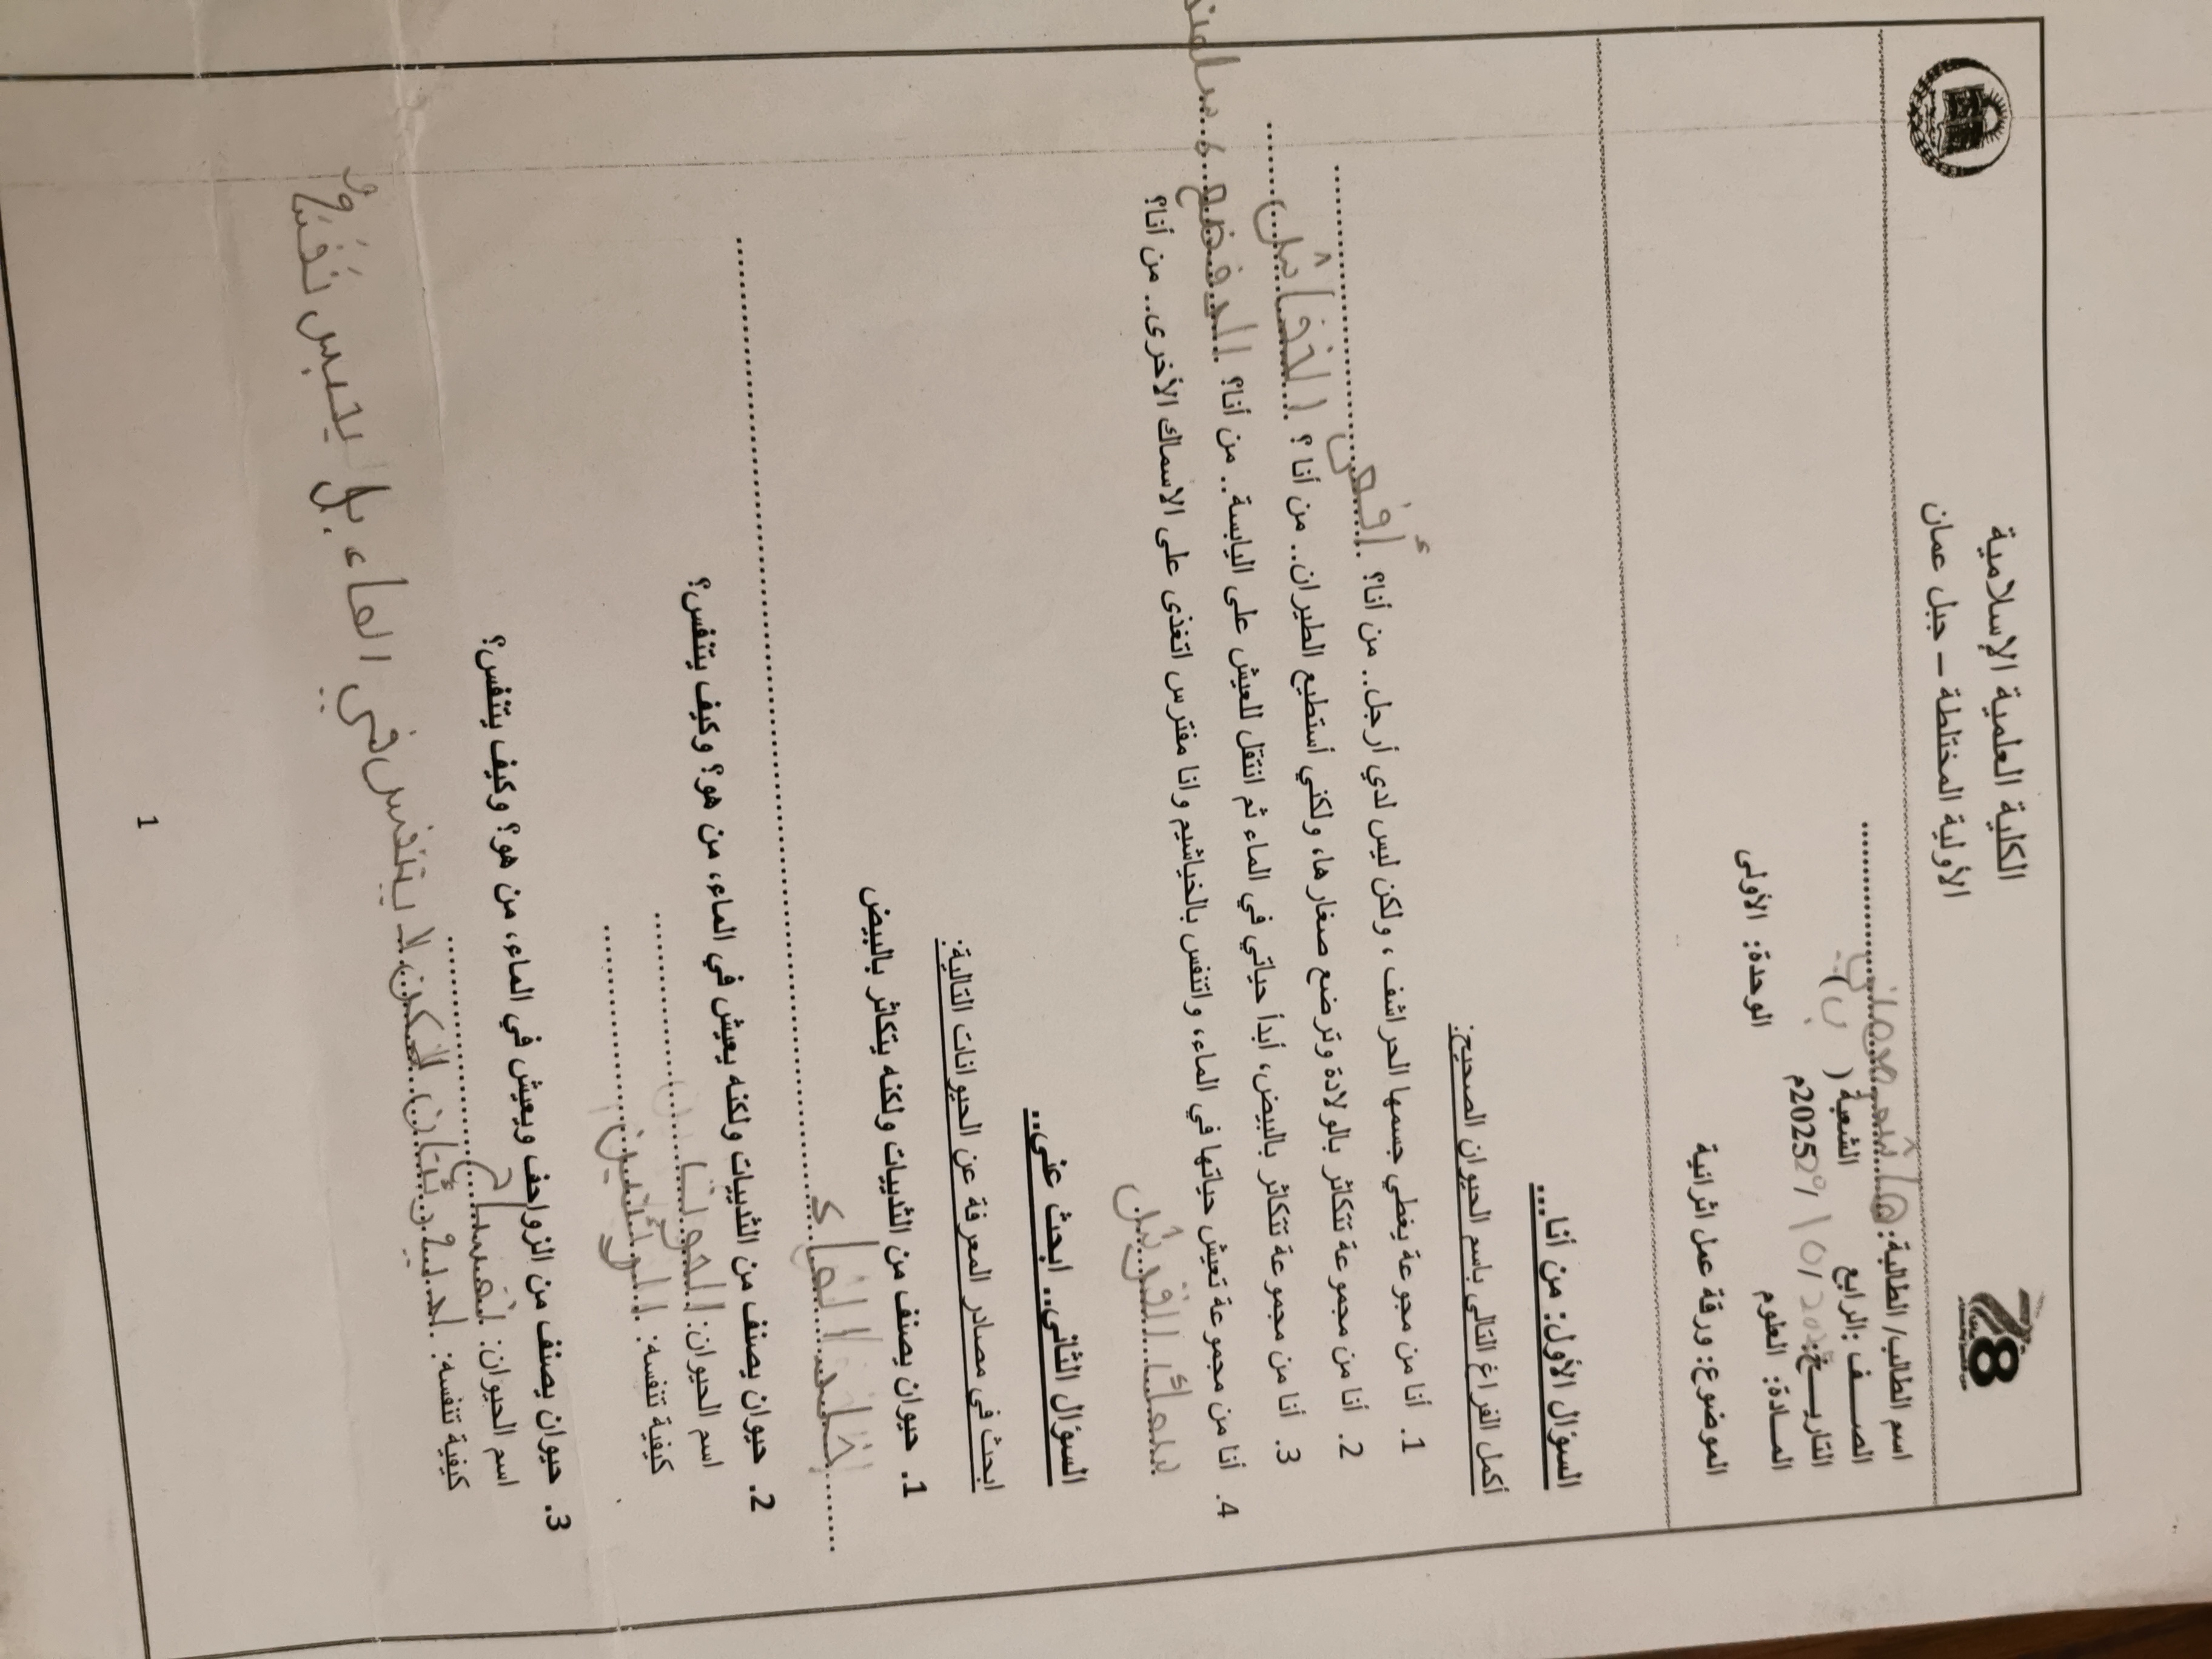 الكلية العلمية الإسلامية
الأولية المختلطة – جبل عمان
اسم الطالب/ الطالبة: هاشم معاني
الصف: الرابع الشعبة ( ب )
التاريخ: 29/10/2025م
المادة: العلوم الوحدة: الأولى
الموضوع: ورقة عمل اثرائية
السؤال الأول: من أنا...
أكمل الفراغ التالي باسم الحيوان الصحيح:
1. أنا من مجوعة يغطي جسمها الحراشف، ولكن ليس لدي أرجل.. من أنا؟ أفعى
2. أنا من مجموعة تتكاثر بالولادة وترضع صغارها، ولكني أستطيع الطيران.. من أنا ؟ الخفاش
3. أنا من مجموعة تتكاثر بالبيض، أبدأ حياتي في الماء ثم انتقل للعيش على اليابسة.. من أنا؟
4. أنا من مجموعة تعيش حياتها في الماء، واتنفس بالخياشيم وانا مفترس اتغذى على الاسماك الأخرى.. من أنا؟
سمك القرش
السؤال الثاني.. ابحث عني..
ابحث في مصادر المعرفة عن الحيوانات التالية:
1. حيوان يصنف من الثدييات ولكنه يتكاثر بالبيض
خلد الماء
2. حيوان يصنف من الثدييات ولكنه يعيش في الماء، من هو؟ وكيف يتنفس؟
اسم الحيوان: الحوت
كيفية تنفسة: الرئتين
3. حيوان يصنف من الزواحف ويعيش في الماء، من هو؟ وكيف يتنفس؟
اسم الحيوان: تمساح
كيفية تنفسة: لديه رئتان لاكن لا يتنفس في الماء بل يحبس نفسه
1